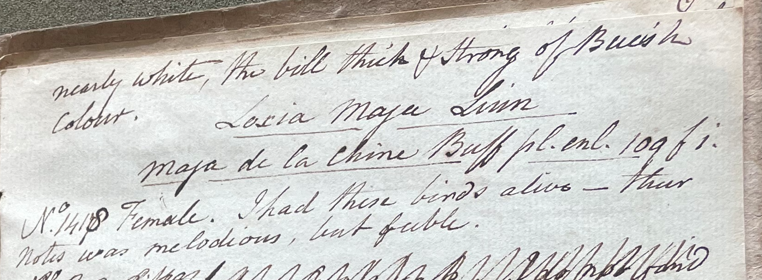 nearly white, the bill thick & strong of Bueish
Colour.
Loxia Maja Linn
Maja de la Chine Buff pl. enl. 109 f 1.
No. 1418 Female. I had these birds alive — their
Notes was melodious, but feeble.